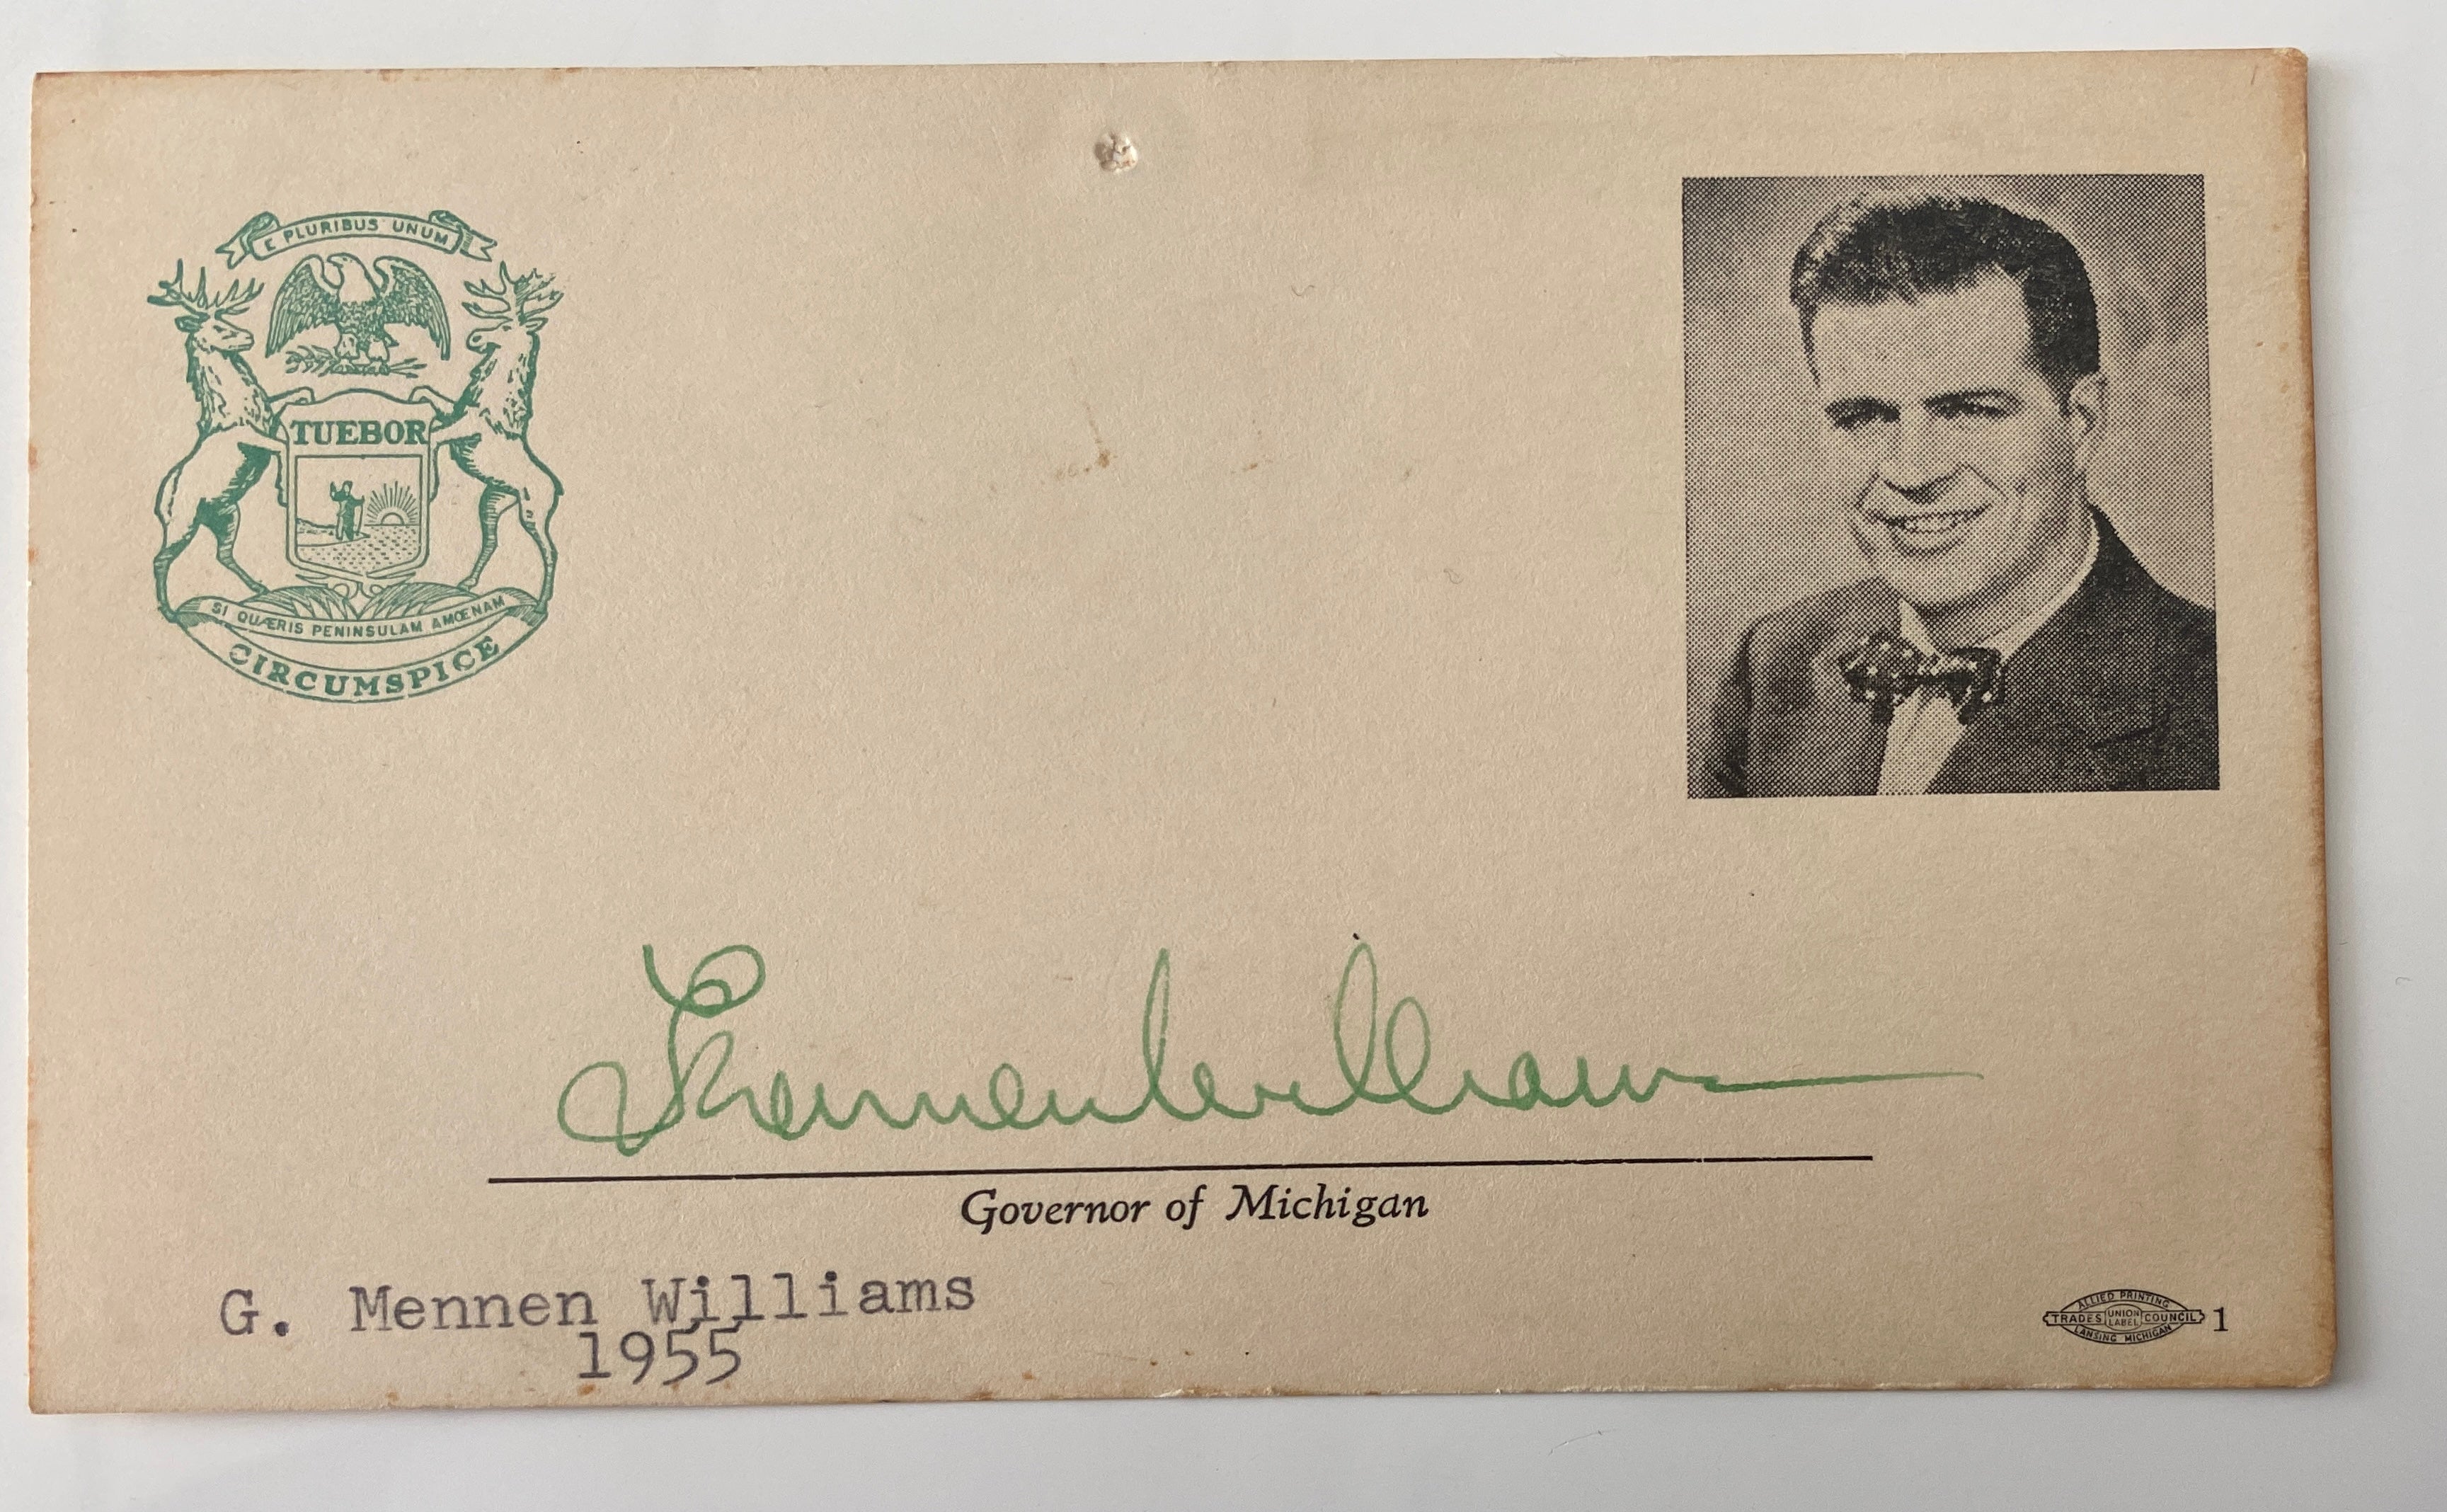 E PLURIBUS UNUM
TUEBOR
SI QUÆRIS PENINSULAM AMŒNAM
CIRCUMSPICE
G Mennen Williams
Governor of Michigan
G. Mennen Williams
1955
ALLIED PRINTING
TRADES UNION LABEL COUNCIL 1
LANSING MICHIGAN